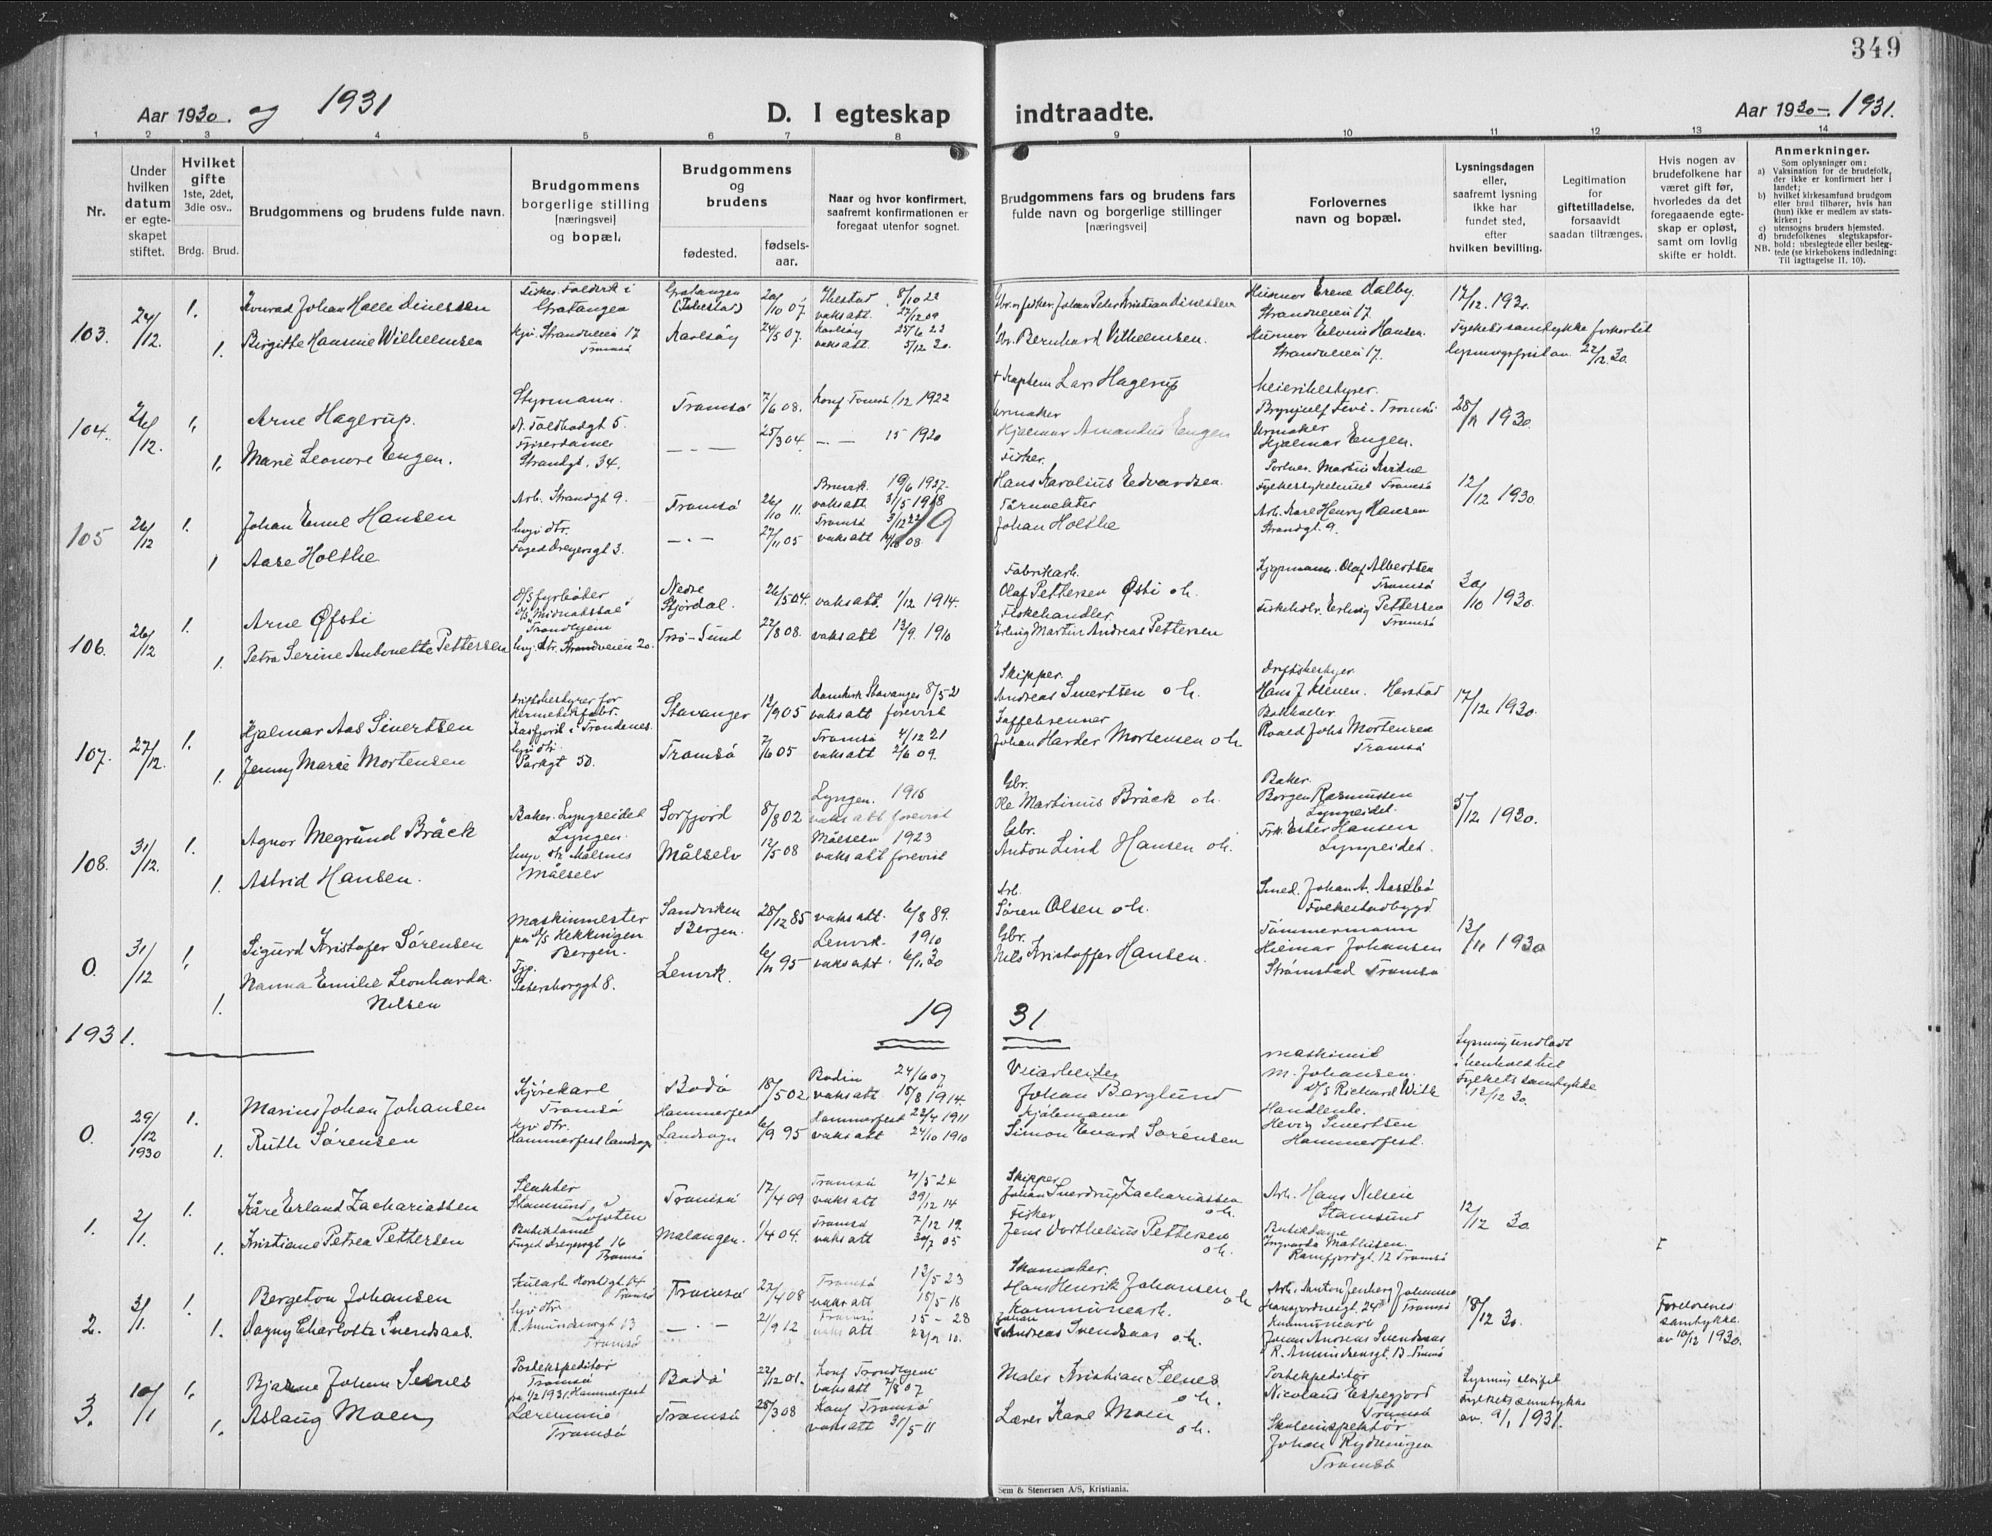 349
Aar 1930. og 1931
D. I egteskap indtraadte.
Aar 1930-1931.
1 2 3 4 5 6 7 8 9 10 11 12 13 14
Nr.
Under hvilken datum er egteskapet stiftet.
Hvilket gifte
1ste, 2det, 3die osv..
Brdg. Brud.
Brudgommens og brudens fulde navn.
Brudgommens borgerlige stilling [næringsvei] og bopæl.
Brudgommens og brudens
fødested.
fødsels-aar.
Naar og hvor konfirmert,
saafremt konfirmationen er foregaat utenfor sognet.
Brudgommens fars og brudens fars
fulde navn og borgerlige stillinger [næringsvei]
Forlovernes navn og bopæl.
Lysningsdagen eller, saafremt lysning ikke har fundet sted, efter hvilken bevilling.
Legitimation for giftetilladelse, forsaavidt saadan tiltrænges.
Hvis nogen av brudefolkene har været gift før, hvorledes da det foregaaende egteskap er opløst, samt om lovlig skifte er holdt.
Anmerkninger.
Som oplysninger om:
a) Vaksination for de brudefolk, der ikke er konfirmert her i landet;
b) hvilket kirkesamfund brudgom eller brud tilhører, hvis han (hun) ikke er medlem av statskirken;
c) utensogns bruders hjemsted.
d) brudefolkenes slegtskapsforhold: ubeslegtede eller beslegtede (se kirkebokens indledning:
NB. Til iagttagelse II. 10).
103. 24/12. 1. Konrad Johan Halle Dinessen
Gratangen
Gratangen (Ibestad) 20/10 07.
Ibestad 8/10 22
vaksatt 27/12 09
Gbr. og fisker Johan Peter Kristian Dinessen
Husmor Erene Dalby. Strandveien 17.
17/12. 1930.
1. Birgitte Hansine Wilhelmsen
Strandveien 17 Tromsö
Karlsöy 24/5 07.
Karlsöy 25/6 22
vaksatt 5/12 20.
Gbr. Bernhard Vilhelmsen.
Husmor Elvine Hansen. Strandveien 17.
Fylkets samtykke forkortet lysningsfrist av 22/12 30.
104. 26/12. 1. Arne Hagerup.
Styrmann. N. Tolbodgt 5.
Tromsö 7/6 08.
Konf Tromsö 1/12 1922
+ Kaptein Lars Hagerup
Meieribestyrer. Brynjulf Tevi. Tromsö
28/11 1930.
1. Marie Leonore Engen.
Friserdame Strandgt. 34.
— - — 25/3 04.
— - — 15 1920
Urmaker Hjalmar Amandus Engen
Urmaker Hjalmar Engen.
105 26/12 1. Johan Emil Hansen
Arb. Strandgt 9.
Tromsö 26/10 11.
19/6 1927.
vaksatt 31/5 1918
Fisker. Hans Karolius Edvardsen
Portner. Martin Fylkessykehuset Tromsö
12/12 1930.
1 Aase Holthe
Ungv dtr. Foged Dreyersgt 3.
— - — 27/11 05
Tromsö 3/12 22
vaksatt 08
19
Tårnvekter Johan Holthe
Arb. Kåre Henry Hansen Strandgt. 9.
106. 26/12 1. Arne Öfsti
D/S fyrböter D/S "Midnatssol" Trondhjem
Nedre Stjördal. 26/5 04.
vaksatt. 1/12 1914.
Fabrikarb. Olaf Pettersen Öfsti o h.
Kjöpmann. Olaf Albertsen Tromsö
30/10 1930.
1. Petra Serine Antonette Pettersen
Ung. dtr. Strandveien 20.
Trö-Sund 22/8 08.
vaksatt 13/9. 1910
Fiskehandler. Erling Martin Andreas Pettersen
Fiskehdlr. Erling Pettersen Tromsö
107. 27/12. 1. Hjalmar Aas Sivertsen
driftsbestyrer for Hermetikfabr. Kasfjord i Trondenes
Stavanger 12/9 05
Domkirk Stavanger 8/5 21
vaksatt forevist
Skipper. Andreas Sivertsen o h.
driftsbestyrer. Hans J. Harstad
17/12 1930.
1. Jenny Marie Mortensen
Ungv dtr. Parkgt 50.
Tromsö 7/6 05
Tromsö 4/12 21
vaksatt 2/6 09.
Kaffebrenner Johan Harder Mortensen o h.
Bokholder Roald Johs Mortensen Tromsö
108. 31/12. 1. Agnor Megrund Bråck
Baker. Lyngseidet Lyngen.
Sorfjord 8/8 02
Lyngen. 1918
vaksatt forevist
Gbr. Ole Martinus Bråck o h.
Baker. Borgen Rasmussen Lyngseidet.
5/12 1930.
1. Astrid Hansen.
Ungv. dtr. Målsnes Målselv
Målselv 12/5 08
Målselv 1923
vaksatt forevist
Gbr. Anton Lind Hansen o h.
Frk. Ester Hansen Lyngseidet.
0. 31/12 1. Sigurd Kristofer Sörensen
Maskinmester på D/S Hekkingen Bergen.
Sandviken Bergen. 28/12 85
vaksatt. 6/8 89.
Arb. Sören Olsen o h.
Smed. Johan A. Folkestadbygd
13/11 1930
1. Nanna Emilie Leonharda Nilsen
Petersborggt 8.
Lenvik. 6/11 95
Lenvik. 1910
vaksatt. 6/1 30
Gbr. Nils Kristoffer Hansen.
Tömmermann Hilmar Johansen Strömstad Tromsö
1931.
19 31
0. 29/12 1930 1. Marius Johan Johansen
Kjörekarl Tromsö
Bodö 18/5 02
Bodin 24/6 07
vaksatt 18/8 1914.
Veiarbeider Johan Berglund
Maskinist M. Johansen. D/S Richard With
Lysning undlatt i henhold til Fylkets samtykke 12/12 30.
1. Ruth Sörensen
Ugv dtr. Hammerfest landsogn
Hammerfest Landsogn 6/9 95
Hammerfest 23/4 1911
vaksatt 24/10 1910
Kjölemann Simon Evard Sörensen
Handlende. Hevig Sivertsen Hammerfest.
1. 2/1. 1. Kåre Erland Zachariassen
Slakter Stamsund Lofoten
Tromsö 17/4 09
Tromsö 4/5 24
vaksatt 29/12 14
Skipper Johan Sverdrup Zachariassen o h.
Arb. Hans Nilsen Stamsund
12/12 30.
1. Kristiane Petrea Pettersen
Butikdame Foged Dreyersgt 16 Tromsö
Malangen. 1/4 04.
Tromsö 7/12 19.
vaksatt 30/7 05
Fisker Jens Dorthelius Pettersen o h.
Butikdame Ingvarda Mathisen. Ramfjordgt. 12 Tromsö
2. 3/1. 1. Bergeton Johansen
Kularb. Tromsö
Tromsö 27/4 08
Tromsö 13/5 23
vaksatt 18/5 18
Skomaker. Hans Henrik Johansen o h.
Arb. Anton Jenberg Johansen Tromsö
18/12 30.
1. Dagny Charlotte Svendsaas.
Ugv dtr. R. Amundsensgt 13 Tromsö
— - — 21/9 12
Tromsö 15 - 28
vaksatt
Kommunearb. Johan Andreas Svendsaas o h.
Kommunearb Johan Andreas Svendsaas R. Amundsensgt. 13 Tromsö
Foreldrenes samtykke. av 10/12 1930.
3. 10/1 1. Bjarne Johan Selnes
Postekspeditör Tromsö fra 1/2 1931. Hammerfest
Bodö 22/12 01.
Konf Trondhjem
vaksatt 2/8 07
Maler Kristian Selnes o h.
Postekspeditör Nicolaus Espejord Tromsö
Lysning Fylkets samtykke av. 9/1 1931.
1. Aslaug Moen
Lærerinne Tromsö
Tromsö 28/3 08
Konf Tromsö
vaksatt 31/5 11
Lærer Karl Moen o h.
Skoleinspektör Johan Rydningen Tromsö
Sem & Stenersen A/S, Kristiania.